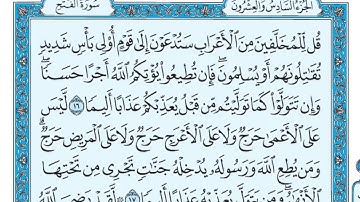 الجزء السادس والعشرون سورة الفتح
قُل لِّلْمُخَلَّفِينَ مِنَ ٱلْأَعْرَابِ سَتُدْعَوْنَ إِلَىٰ قَوْمٍ أُو۟لِى بَأْسٍ شَدِيدٍ
تُقَـٰتِلُونَهُمْ أَوْ يُسْلِمُونَ ۖ فَإِن تُطِيعُوا۟ يُؤْتِكُمُ ٱللَّهُ أَجْرًا حَسَنًا ۖ
وَإِن تَتَوَلَّوْا۟ كَمَا تَوَلَّيْتُم مِّن قَبْلُ يُعَذِّبْكُمْ عَذَابًا أَلِيمًا ١٦ لَّيْسَ
عَلَى ٱلْأَعْمَىٰ حَرَجٌ وَلَا عَلَى ٱلْأَعْرَجِ حَرَجٌ وَلَا عَلَى ٱلْمَرِيضِ حَرَجٌ ۗ
وَمَن يُطِعِ ٱللَّهَ وَرَسُولَهُۥ يُدْخِلْهُ جَنَّـٰتٍ تَجْرِى مِن تَحْتِهَا
ٱلْأَنْهَـٰرُ ۖ وَمَن يَتَوَلَّ يُعَذِّبْهُ عَذَابًا أَلِيمًا ١٧ لَّقَدْ رَضِىَ ٱللَّهُ